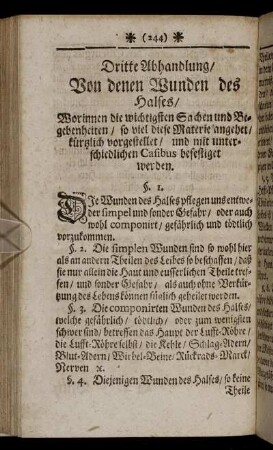 * (244) *
Dritte Abhandlung/
Von denen Wunden des
Halses/
Worinnen die wichtigsten Sachen und Be-
gebenheiten / so viel diese Materie angehet /
kürtzlich vorgestellet / und mit unter-
schiedlichen Casibus befestiget
werden.
§. 1.
DJe Wunden des Halses pflegen uns entwe-
der simpel und sonder Gefahr / oder auch
wohl componirt / gefährlich und tödtlich
vorzukommen.
§. 2. Die simplen Wunden sind so wohl hier
als an andern Theilen des Leibes so beschaffen / daß
sie nur allein die Haut und eusserlichen Theile tref-
fen / und sonder Gefahr / als auch ohne Verkür-
tzung des Lebens können füglich geheilet werden.
§. 3. Die componirten Wunden des Halses /
welche gefährlich / tödtlich / oder zum wenigsten
schwer sind / betreffen das Haupt der Lufft-Röhre /
die Lufft-Röhre selbst / die Kehle / Schlag-Adern /
Blut-Adern / Wirbel-Beine / Rückrads-Marck /
Nerven ꝛc.
§. 4. Diejenigen Wunden des Halses / so keine
Theile